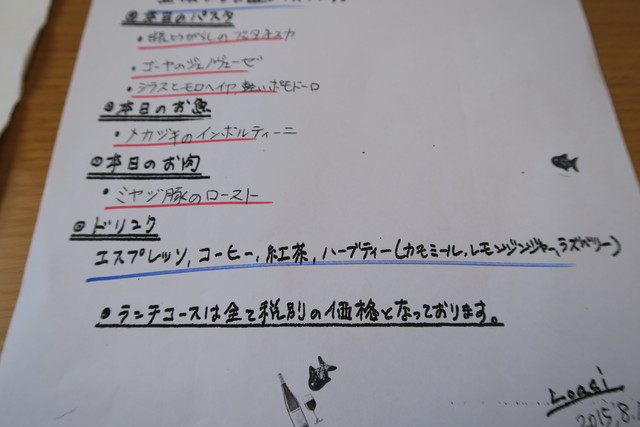 ◎本日のパスタ
・万願寺とうがらしのプッタネスカ
・ゴーヤのジェノヴェーゼ
・シラスとモロヘイヤ、軽いポモドーロ
◎本日のお魚
・メカジキのインボルティーニ
◎本日のお肉
・ミヤジ豚のロースト
◎ドリンク
エスプレッソ, コーヒー, 紅茶, ハーブティー(カモミール, レモンジンジャー, ラズベリー)
◎ランチコースは全て税別の価格となっております。
Loasi
2015,8,